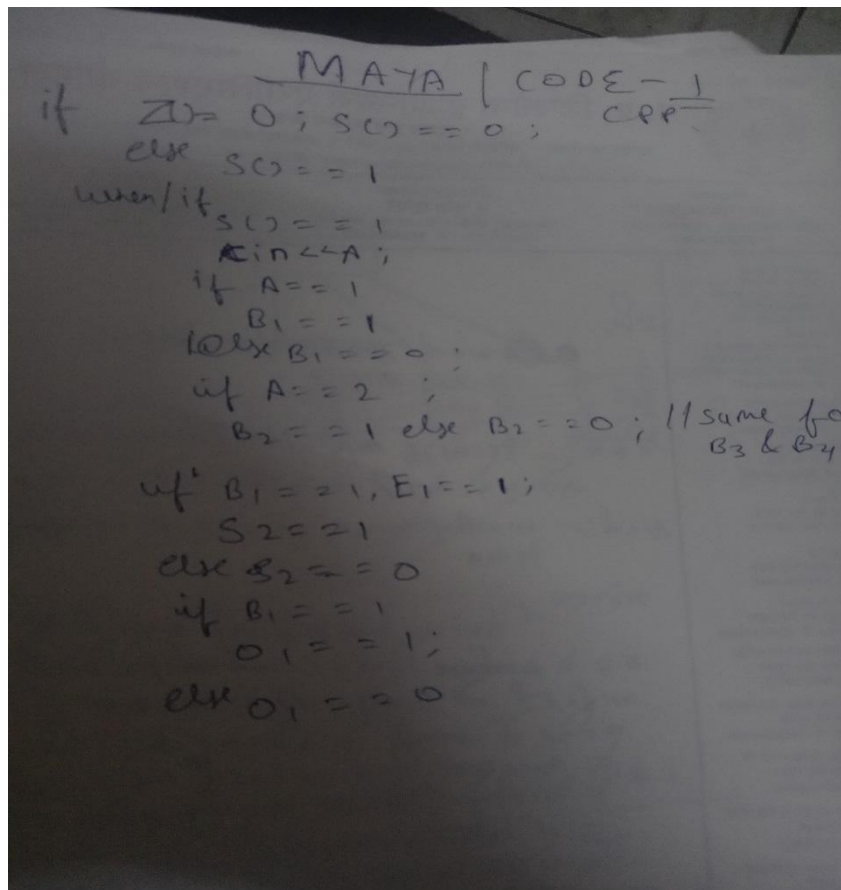 MAYA | CODE - 1
CPP
if Z()= 0 ; S() == 0 ;
else S() == 1
when/if S() == 1
cin<<A ;
if A == 1
B1 == 1
else B1 == 0 ;
if A == 2 ;
B2 == 1 else B2 == 0 ; // same fo
B3 & B4
if B1 == 1, E1 == 1 ;
S2 == 1
else S2 == 0
if B1 == 1
O1 == 1 ;
else O1 == 0